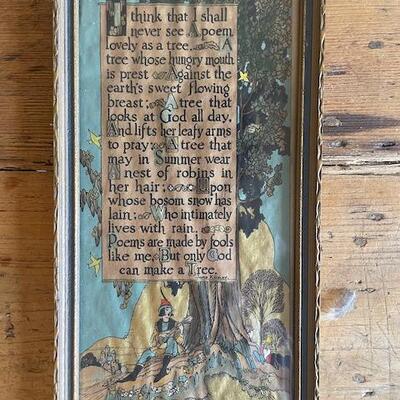 I think that I shall
never see A poem
lovely as a tree. A
tree whose hungry mouth
is prest Against the
earth's sweet flowing
breast; A tree that
looks at God all day,
And lifts her leafy arms
to pray; A tree that
may in Summer wear
A nest of robins in
her hair; Upon
whose bosom snow has
lain; Who intimately
lives with rain.
Poems are made by fools
like me, But only God
can make a Tree.
Joyce Kilmer